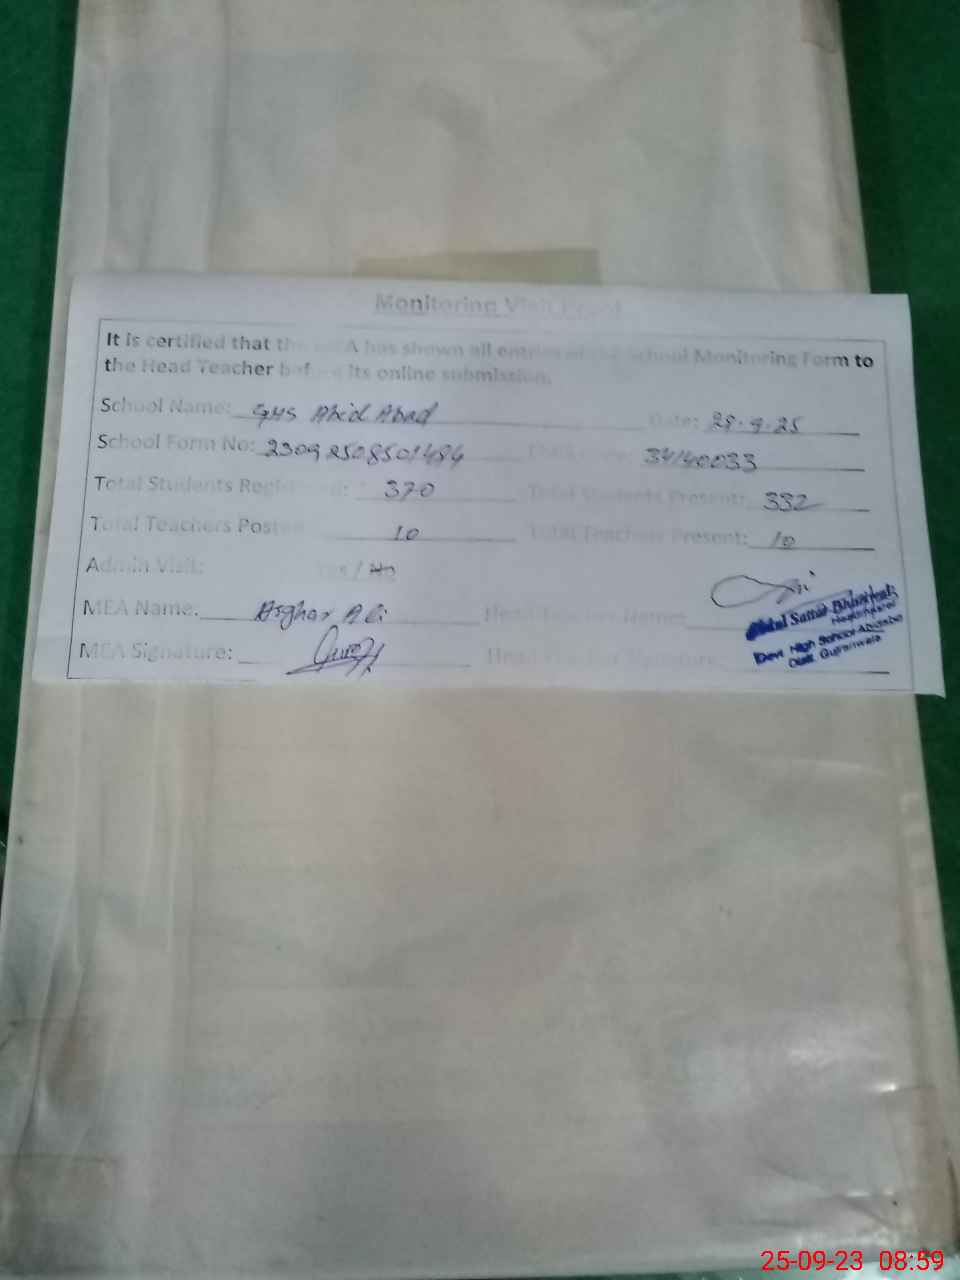 Monitoring Visit Proof
It is certified that the MEA has shown all entries of the School Monitoring Form to
the Head Teacher before its online submission.
School Name: GHS Abid Abad Date: 28-9-25
School Form No: 23092508501484 34140033
Total Students Registered: 370 Total Students Present: 332
Total Teachers Posted: 10 Total Teachers Present: 10
Admin Visit: Yes / No
MEA Name: Asghar Ali Head Teacher Name:
MEA Signature: Head Teacher Signature:
Abdul Sattar Bhinder
Headmaster
Govt High School Abidabad
Distt. Gujranwala
25-09-23 08:59